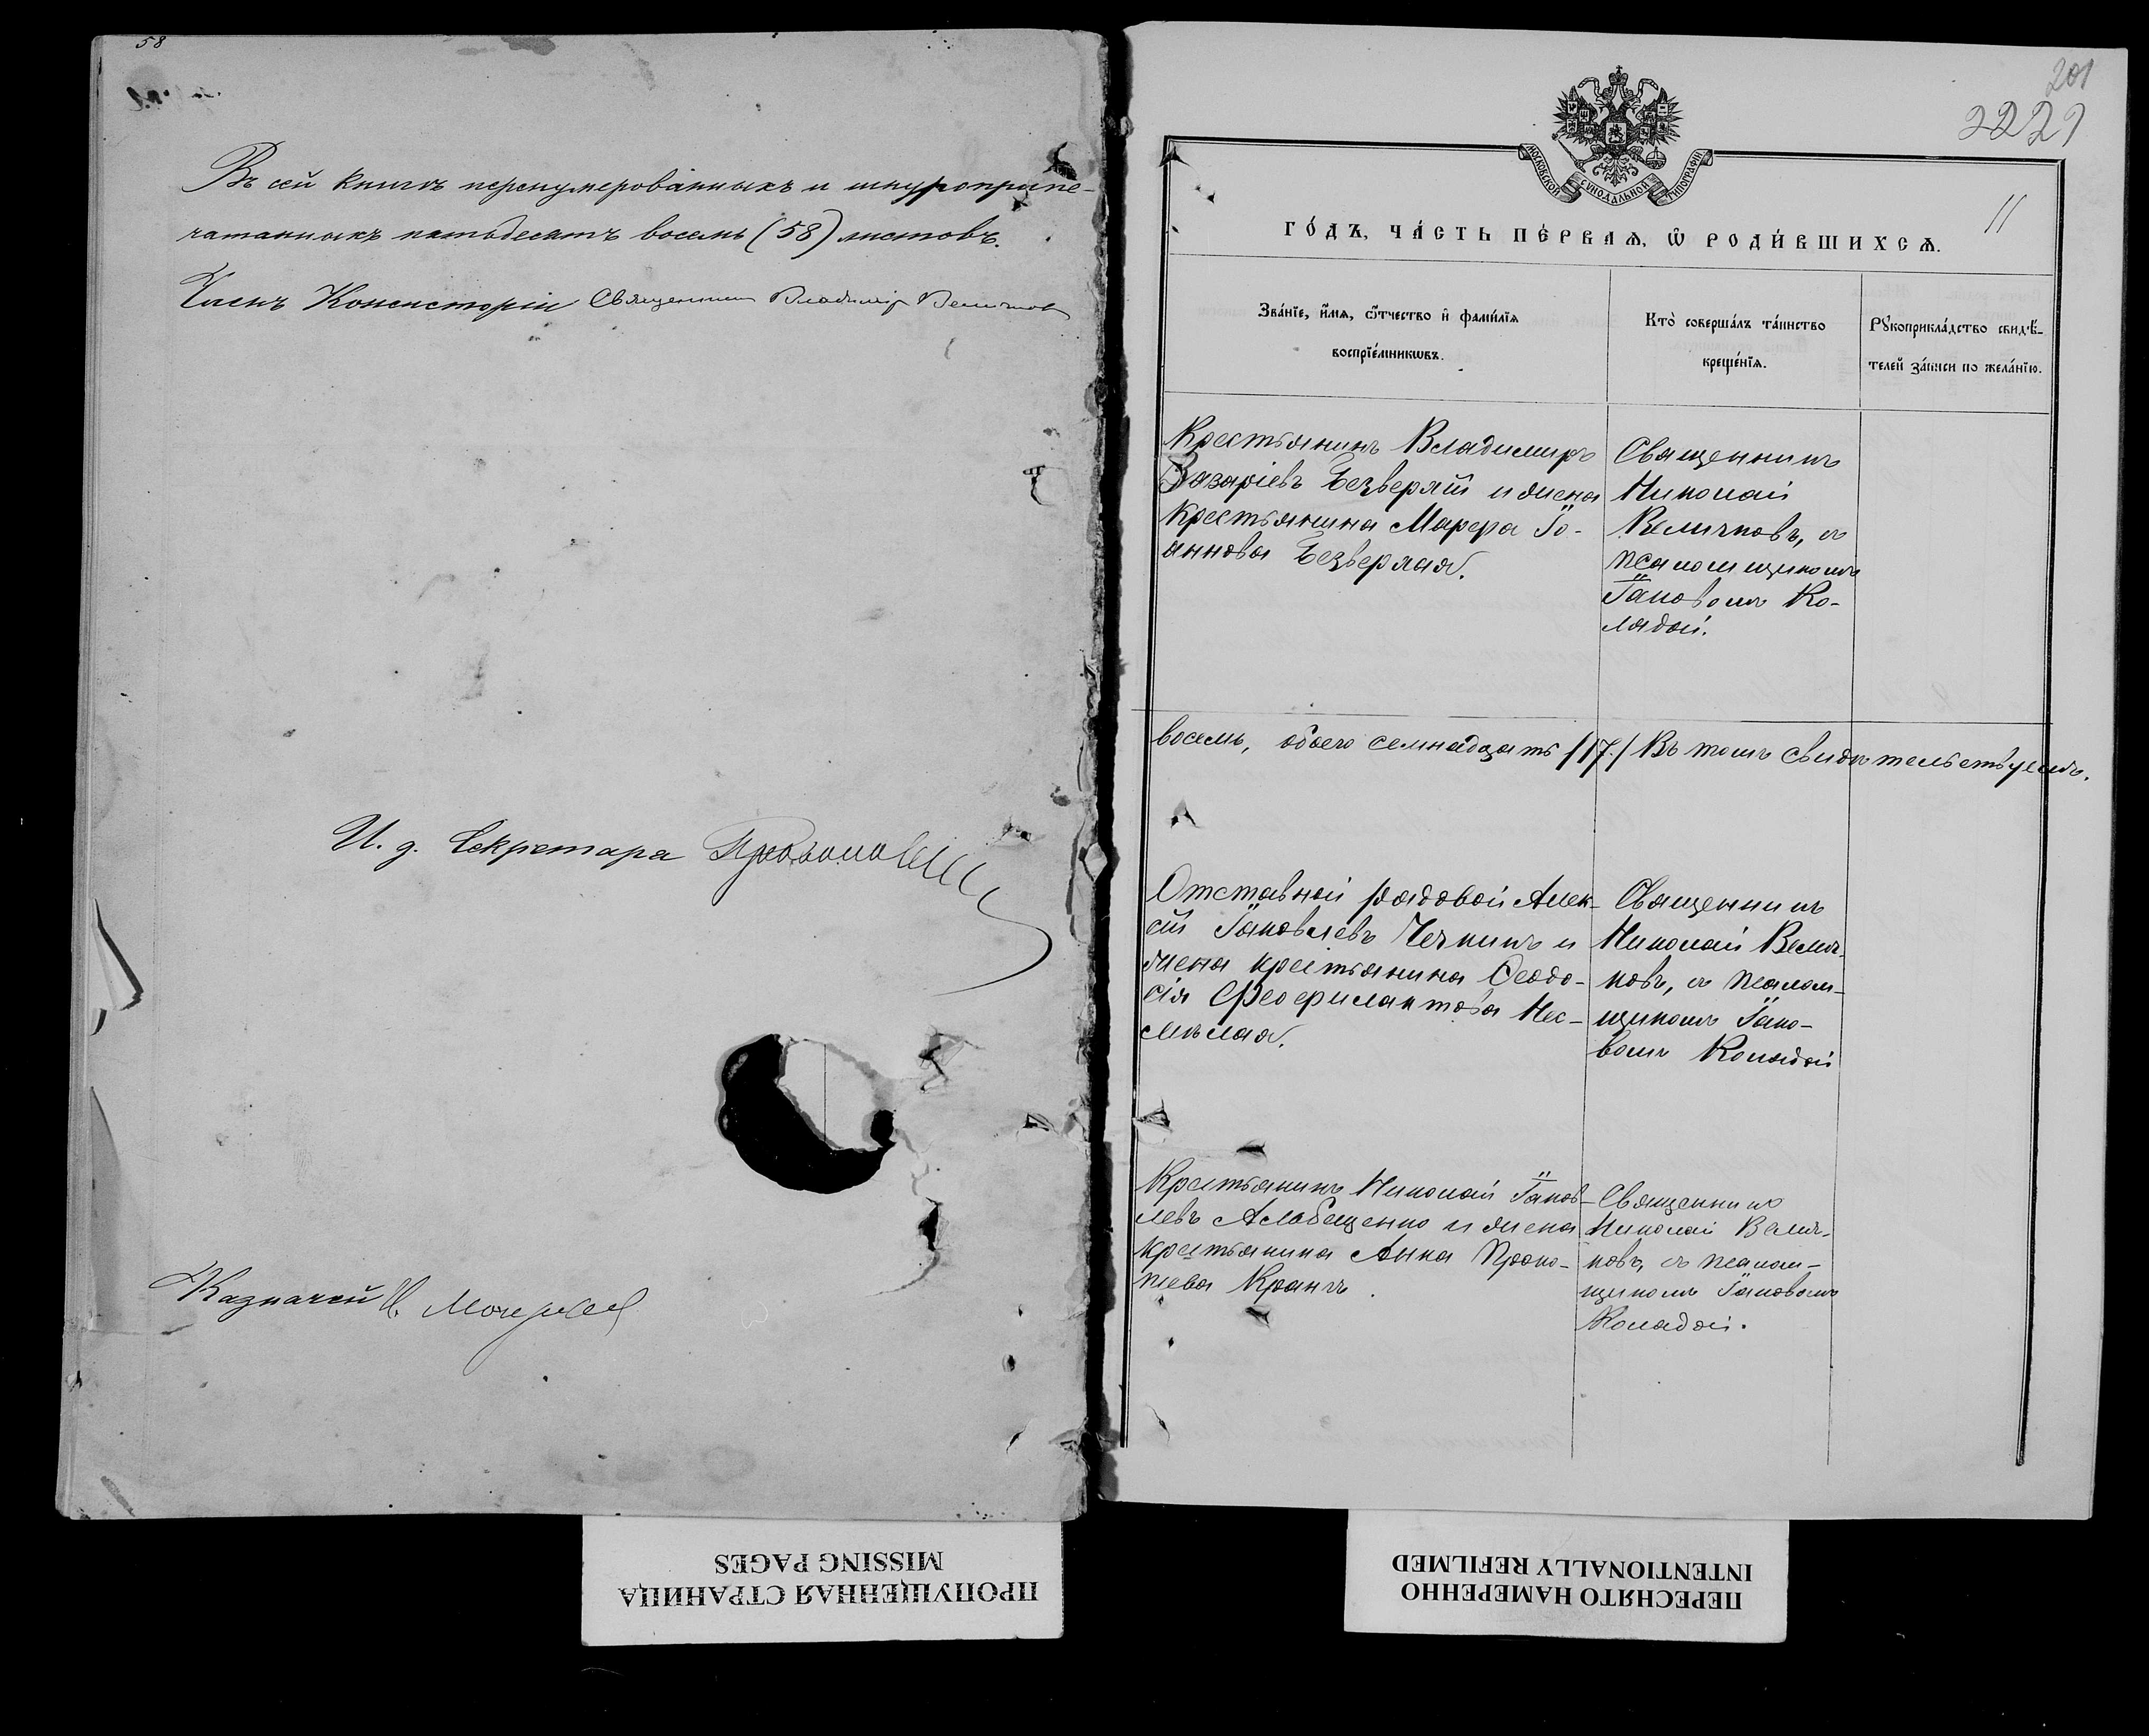 58
Въ сей книгѣ перенумерованныхъ и шнуроприпе-
чатанныхъ пятьдесятъ восемь (58) листовъ.
Членъ Консисторіи Священникъ Владимір
И. д. Секретаря
Казначей
201
11
МОСКОВСКОЙ СѴНОДАЛЬНОЙ ТИПОГРАФІИ
ГО́ДЪ, ЧА́СТЬ ПЕ́РВАѦ, Ѡ҆ РОДИ́ВШИХСѦ.
Зва́нїе, и҆́мѧ, ѻ҆́тчество и҆ фами́лїѧ
воспрїе́мникѡвъ.
Кто̀ соверша́лъ та́инство
креще́нїѧ.
Рꙋкоприкла́дство свидѣ́-
телей за́писи по жела́нїю.
Крестьянинъ Владимиръ
Азаріевъ Безверхій и жена
крестьянина Марфа Іо-
аннова Безверхая.
Священникъ
Николай
Величковъ, съ
псаломщикомъ
Іаковомъ Ко-
лядой.
восемь, обоего семнадцать /17./ Въ томъ свидѣтельствуемъ.
Отставной рядовой Алек-
сѣй Іаковлевъ Чечкинъ и
жена крестьянина Ѳеодо-
сія Феофилактова Нес-
мѣлая.
Священникъ
Николай Велич-
ковъ, съ псалом-
щикомъ Іако-
вомъ Колядой
Крестьянинъ Николай Іаков-
левъ и жена
крестьянина Анна Проко-
піева
Священникъ
Николай Велич-
ковъ, съ псалом-
щикомъ Іаковомъ
Колядой.
ПРОПУЩЕННАЯ СТРАНИЦА
MISSING PAGES
ПЕРЕСНЯТО НАМЕРЕННО
INTENTIONALLY REFILMED